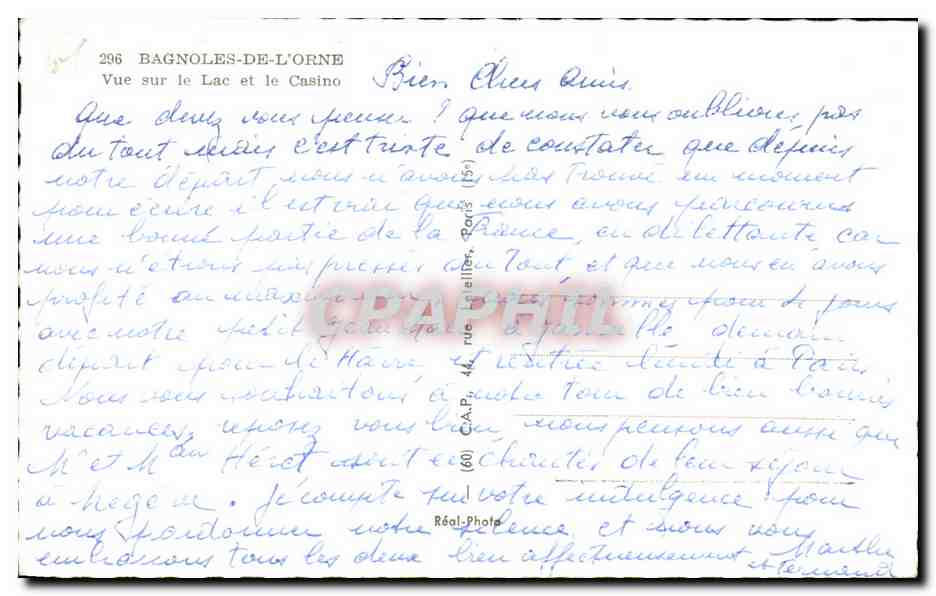 296 BAGNOLES-DE-L'ORNE
Vue sur le Lac et le Casino
Bien Chers Amis
Que devez vous penser ? que nous vous oublions pas
du tout mais c'est triste de constater que depuis
notre départ, nous n'avons pas trouvé un moment
pour écrire il est vrai que nous avons parcourus
une bonne partie de la France, en dilettante car
nous n'étions pas pressés du tout et que nous en avons
profité au maximum nous sommes pour jours
avec notre petit à demain
départ pour le Havre et rentrée lundi à Paris
Nous vous souhaitons à notre tour de bien bonnes
vacances, reposez vous bien nous pensons aussi que
Mr et Mme sont enchantés de leur séjour
à Megève. Je compte sur votre indulgence pour
nous pardonner notre silence et nous vous
embrassons tous les deux bien affectueusement Marthe
et Fernand
(60) C.A.P., 44, rue Letellier, Paris (15e)
Réal-Photo
CPAPHIL